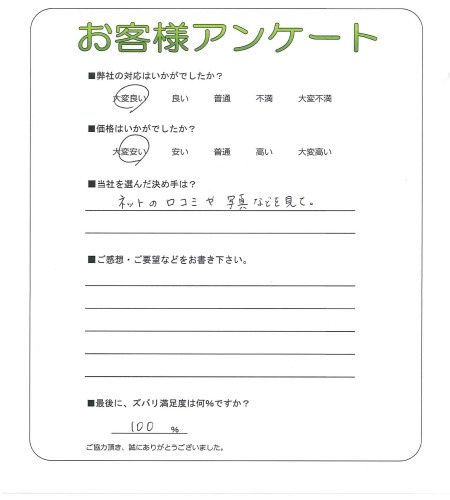 お客様アンケート
■弊社の対応はいかがでしたか？
大変良い 良い 普通 不満 大変不満
■価格はいかがでしたか？
大変安い 安い 普通 高い 大変高い
■当社を選んだ決め手は？
ネットの口コミや写真などを見て。
■ご感想・ご要望などをお書き下さい。
■最後に、ズバリ満足度は何%ですか？
100 %
ご協力頂き、誠にありがとうございました。